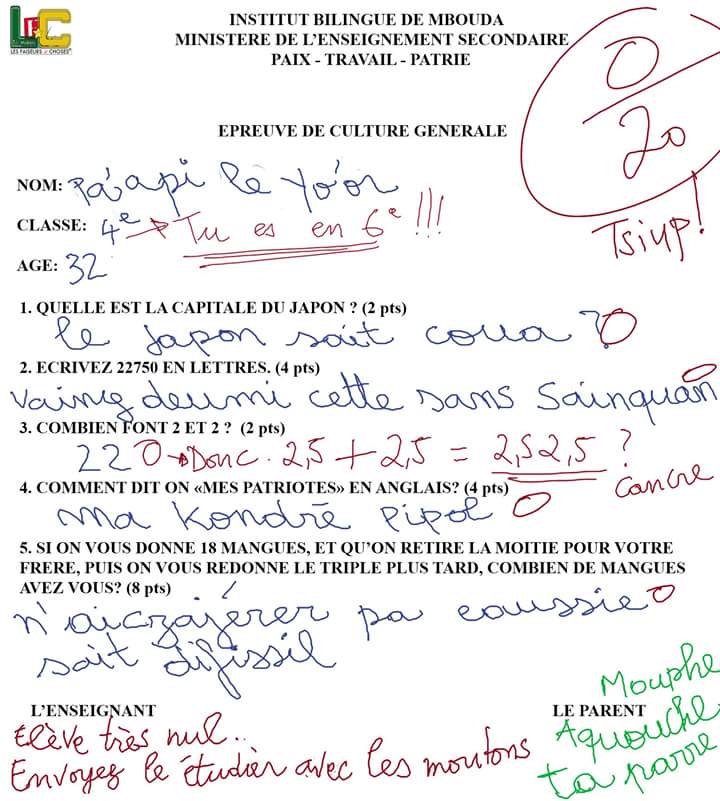 LFC
LES FAISEURS DE CHOSES
INSTITUT BILINGUE DE MBOUDA
MINISTERE DE L'ENSEIGNEMENT SECONDAIRE
PAIX - TRAVAIL - PATRIE
0/20
Tsiup!
EPREUVE DE CULTURE GENERALE
NOM: Pa'api le Yo'or
CLASSE: 4e → Tu es en 6e !!!
AGE: 32
1. QUELLE EST LA CAPITALE DU JAPON ? (2 pts)
le japon sait coua ? 0
2. ECRIVEZ 22750 EN LETTRES. (4 pts)
0
vaing deumi cette sans sainquan
3. COMBIEN FONT 2 ET 2 ? (2 pts)
22 0 → Donc. 2,5 + 2,5 = 2,52,5 ?
Cancre
4. COMMENT DIT ON «MES PATRIOTES» EN ANGLAIS? (4 pts)
ma kondrē pipol 0
5. SI ON VOUS DONNE 18 MANGUES, ET QU'ON RETIRE LA MOITIE POUR VOTRE
FRERE, PUIS ON VOUS REDONNE LE TRIPLE PLUS TARD, COMBIEN DE MANGUES
AVEZ VOUS? (8 pts)
n'aiczajérer pa eaussie 0
sait difissil
L'ENSEIGNANT
Elève très nul..
Envoyez le étudier avec les moutons
LE PARENT
Mouphe
Aquouche
ta parre